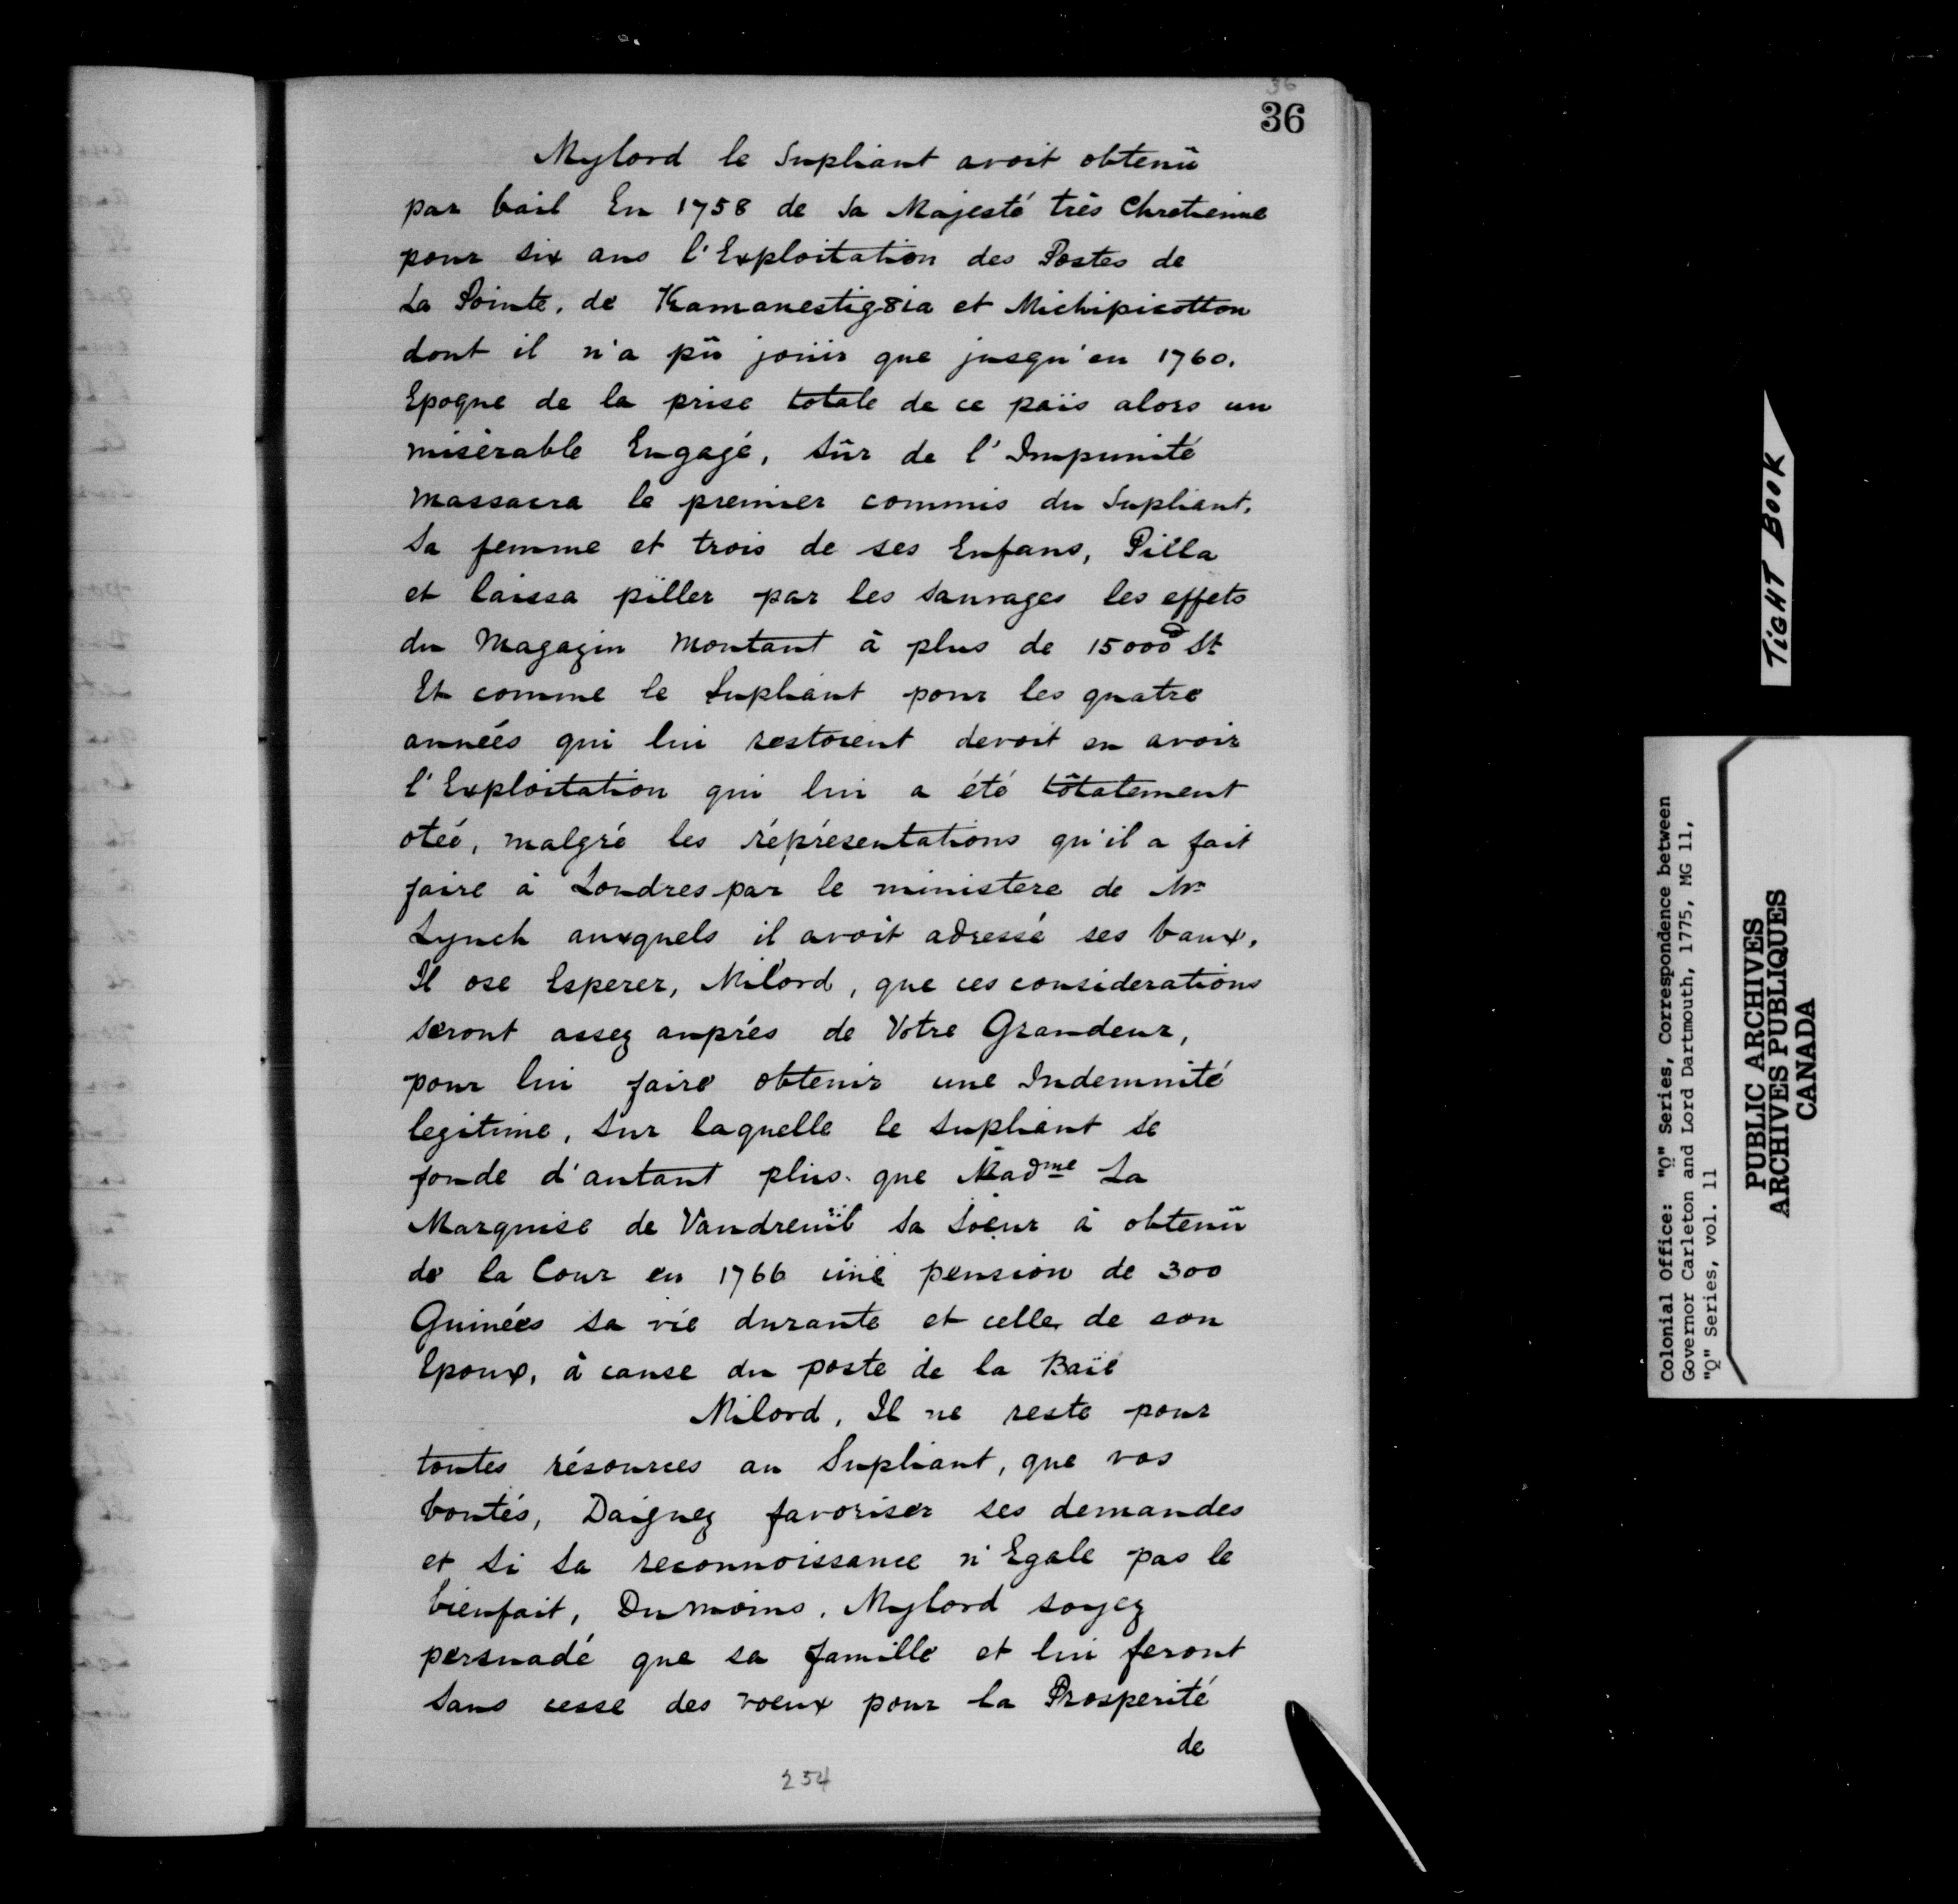 36
36
Mylord le Supliant avoit obtenû
par bail En 1758 de Sa Majesté très Chretienne
pour six ans l'Exploitation des Postes de
La Pointe, de Kamanestig8ia et Michipicotton
dont il n'a pû joüir que jusqu'en 1760.
Epoque de la prise totale de ce païs alors un
misèrable Engagé, sûr de l'Impunité
massacra le premier commis du Supliant,
Sa femme et trois de ses Enfans, Pilla
et laissa piller par les sauvages les effets
du Magazin montant à plus de 15000 St
Et comme le Supliant pour les quatre
années qui lui restoient devoit en avoir
l'Exploitation qui lui a été tôtalement
otéé, malgré les réprésentations qu'il a fait
faire à Londres par le ministere de Mr
Lynch auxquels il avoit adressé ses baux.
Il ose Esperer, Milord, que ces considerations
seront assez auprès de Votre Grandeur,
pour lui faire obtenir une Indemnité
legitime, sur laquelle le supliant se
fonde d'autant plus que Madme La
Marquise de Vaudreüil sa soeur à obtenû
de la Cour en 1766 une pension de 300
Guinées sa vie durante et celle de son
Epoux, à cause du poste de la Baïe
Milord, Il ne reste pour
toutes résources au Supliant, que vos
bontés, Daignez favoriser ses demandes
et si sa reconnoissance n'Egale pas le
bienfait, Du moins, Mylord soyez
persuadé que sa famille et lui feront
sans cesse des voeux pour la Prosperité
de
254
TIGHT BOOK
Colonial Office: "Q" Series, Correspondence between
Governor Carleton and Lord Dartmouth, 1775, MG 11,
"Q" Series, vol. 11
PUBLIC ARCHIVES
ARCHIVES PUBLIQUES
CANADA